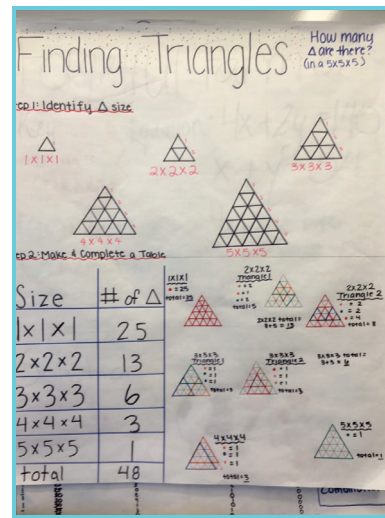 Finding Triangles
How many
Δ are there?
(in a 5x5x5)
ep 1: Identify Δ size
1x1x1
2x2x2
3x3x3
4x4x4
5x5x5
ep 2: Make & Complete a Table
Size # of Δ
1x1x1 25
2x2x2 13
3x3x3 6
4x4x4 3
5x5x5 1
total 48
1x1x1
= 25
total=25
2x2x2
Triangle 1
total=5
2x2x2 total=
8+5=13
2x2x2
Triangle 2
= 2
= 2
= 4
total=8
3x3x3
Triangle 1
=1
=1
=1
total=3
3x3x3
Triangle 2
=1
=1
total=3
3x3x3 total=
3+3=6
4x4x4
=1
=1
=1
total=3
5x5x5
=1
total=1